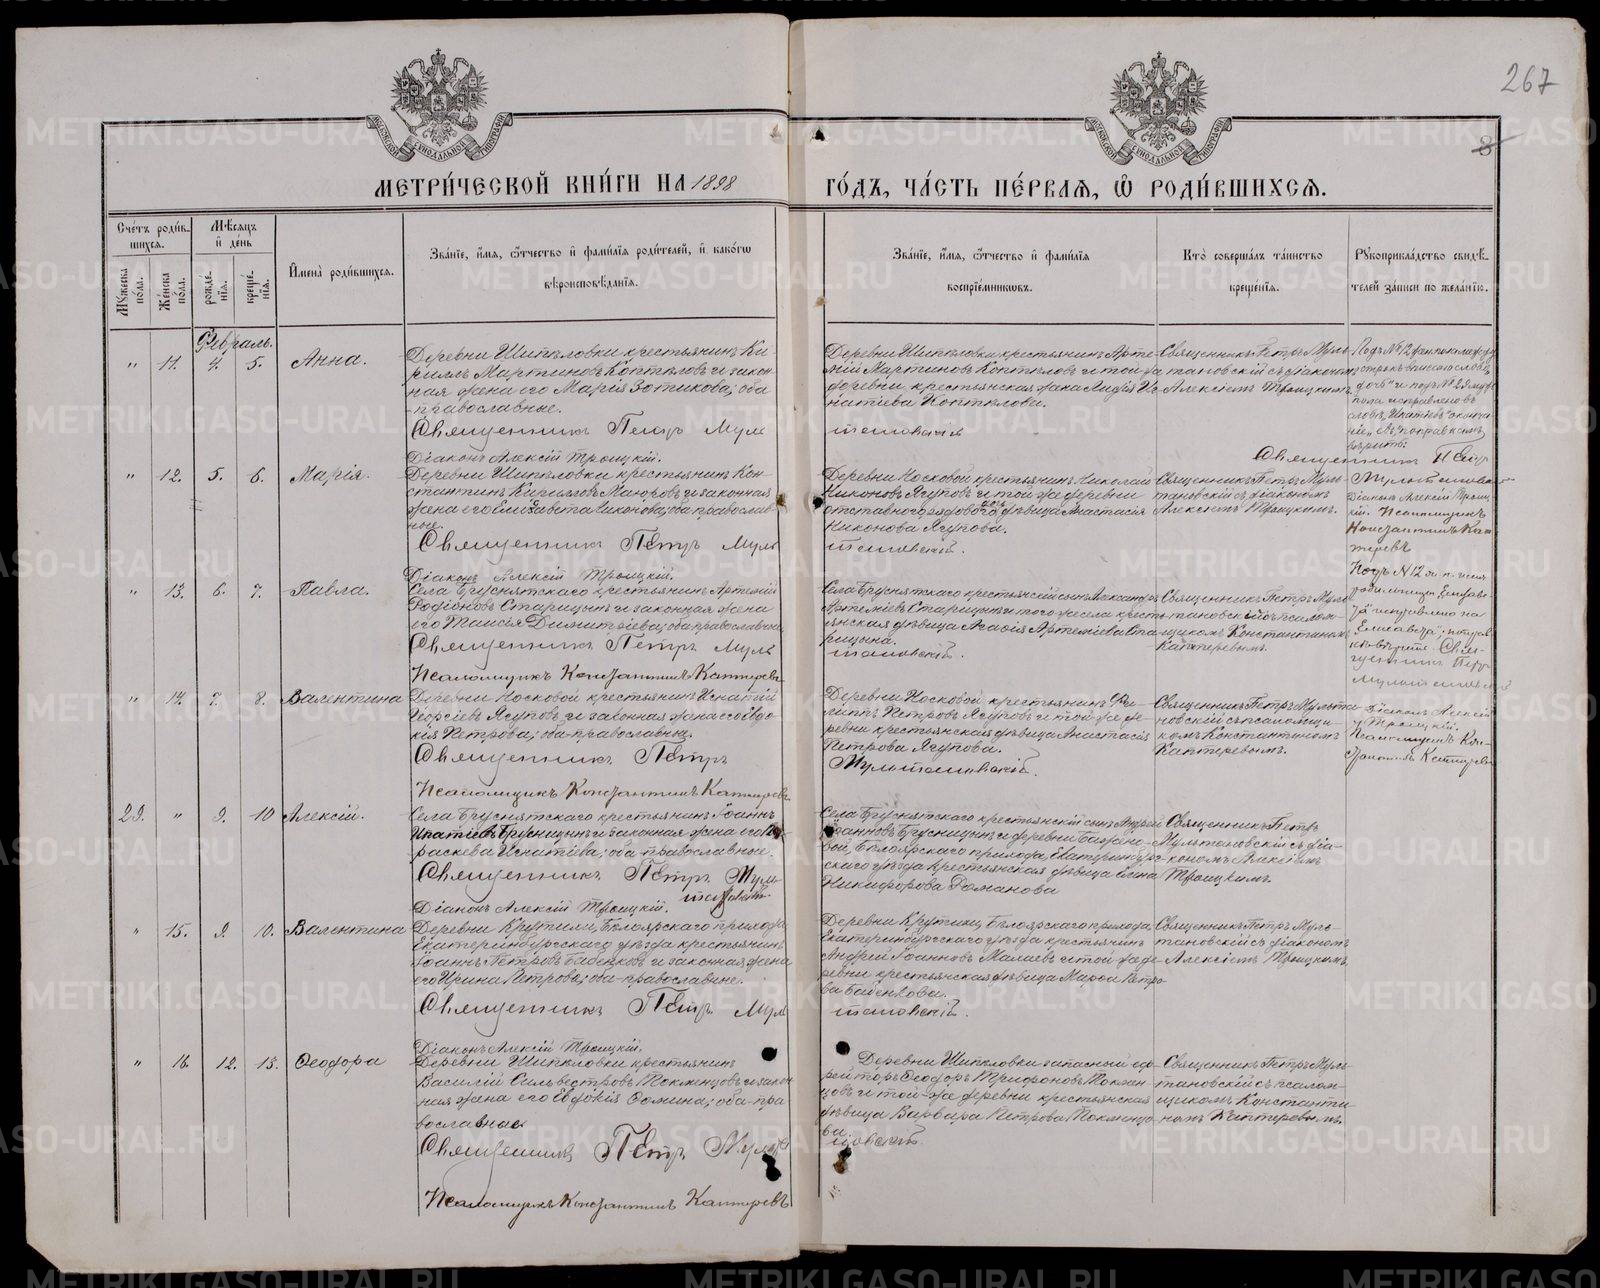 267
8
МОСКОВСКОЙ СѴНОДАЛЬНОЙ ТИПОГРАФІИ
МОСКОВСКОЙ СѴНОДАЛЬНОЙ ТИПОГРАФІИ
МЕТРИ́ЧЕСКОЙ КНИ́ГИ НА 1898
ГО́ДЪ, ЧА́СТЬ ПЕ́РВАЯ, Ѿ РОДИ́ВШИХСЯ.
Сче́тъ роди́в-
шихся.
Мѣсяцъ
и де́нь
Мужеска
по́ла.
Женска
по́ла.
рожде́-
нїя.
креще́-
нїя.
Имена̀ роди́вшихся.
Зва́нїе, и́мя, ѻ́тчество и фами́лїя роди́телей, и како́гѡ
вѣроисповѣ́данїя.
Зва́нїе, и́мя, ѻ́тчество и фами́лїя
воспрїе́мникѡвъ.
Кто̀ соверша́лъ та́инство
креще́нїя.
Рукоприкла́дство свидѣ́-
телей за́писи по жела́нїю.
Февраль.
" 11. 4. 5. Анна.
Деревни Шипѣловки крестьянинъ Ки-
риллъ Мартиновъ Коптѣловъ и закон-
ная жена его Марія Зотикова; оба
православные.
Священникъ Петръ Муль
тановскій
Діаконъ Алексій Троицкій.
Деревни Шипѣловки крестьянинъ Арте-
мій Мартиновъ Коптѣловъ и той-же
деревни крестьянская жена Лидія Иг-
натіева Коптѣлова.
Священникъ Петръ Муль-
тановскій съ діакономъ
Алексіемъ Троицкимъ.
" 12. 5. 6. Марія.
Деревни Шипѣловки крестьянинъ Кон-
стантинъ Кирилловъ Маноровъ и законная
жена его Елизавета Никонова; оба православ-
ные.
Священникъ Петръ Муль
тановскій.
Діаконъ Алексій Троицкій.
Деревни Носковой крестьянинъ Николай
Никоновъ Ягуповъ и той же деревни
отставного рядового дѣвица Анастасія
Никонова Ягупова.
Священникъ Петръ Муль-
тановскій съ діакономъ
Алексіемъ Троицкимъ.
Священникъ Петр
Мультановскій
Діаконъ Алексій Троиц-
кій. Псаломщикъ
Константинъ Кап-
теревъ
" 13. 6. 7. Павла.
Села Бруснятскаго крестьянинъ Артемій
Родіоновъ Старицынъ и законная жена
его Таисія Димитріева; оба православные
Священникъ Петръ Муль
тановскій.
Псаломщикъ Константинъ Каптеревъ
Села Бруснятскаго крестьянскій сынъ Александръ
Артеміевъ Старицынъ и того же села кресть-
янская дѣвица Агафія Артеміева Ста-
рицына.
Священникъ Петръ Муль-
тановскій съ псалом-
щикомъ Константиномъ
Каптеревымъ.
" 14. 7. 8. Валентина
Деревни Носковой крестьянинъ Игнатій
Георгіевъ Ягуповъ и законная жена его Евдо-
кія Петрова; оба православные.
Священникъ Петръ
Мультановскій.
Псаломщикъ Константинъ Каптеревъ
Деревни Носковой крестьянинъ Фи-
липпъ Петровъ Ягуповъ и той же де-
ревни крестьянская дѣвица Анастасія
Петрова Ягупова.
Священникъ Петръ Мульта-
новскій съ псаломщи-
комъ Константиномъ
Каптеревымъ.
Діаконъ Алексій
Троицкій
Псаломщикъ Кон-
стантинъ Каптеревъ
29. " 9. 10 Алексій.
Села Бруснятскаго крестьянинъ Іоаннъ
Ипатіевъ Брусницынъ и законная жена его Па-
раскева Игнатіева; оба православные.
Священникъ Петръ Муль-
тановскій
Діаконъ Алексій Троицкій.
Села Бруснятскаго крестьянскій сынъ Андрей
Іоанновъ Брусницынъ и деревни
Бѣлоярскаго прихода, Екатеринбург-
скаго уѣзда крестьянская дѣвица Елена
Никифорова Романова
Священникъ Петръ
Мультановскій съ діа-
кономъ Алексіемъ
Троицкимъ.
" 15. 9. 10. Валентина
Деревни Крутихи, Бѣлоярскаго прихода,
Екатеринбургскаго уѣзда крестьянинъ
Іоаннъ Петровъ Бабенковъ и законная жена
его Ирина Петрова; оба православные.
Священникъ Петръ Муль
тановскій.
Діаконъ Алексій Троицкій.
Деревни Крутихи, Бѣлоярскаго прихода,
Екатеринбургскаго уѣзда крестьянинъ
Андрей Іоанновъ Малаевъ и той же де-
ревни крестьянская дѣвица Марфа Петро-
ва Бабенкова.
Священникъ Петръ Муль-
тановскій съ діакономъ
Алексіемъ Троицкимъ.
" 16. 12. 13. Ѳеодора
Деревни Шипѣловки крестьянинъ
Василій Сильвестровъ Токменцовъ и закон-
ная жена его Евдокія Ѳомина; оба пра-
вославные.
Священникъ Петръ Мульта
новскій.
Псаломщикъ Константинъ Каптеревъ
Деревни Шипѣловки запасный еф-
рейторъ Ѳеодоръ Трифоновъ Токмен-
цовъ и той-же деревни крестьянская
дѣвица Варвара Петрова Токменцо-
ва.
Священникъ Петръ Муль-
тановскій съ псалом-
щикомъ Константи-
номъ Каптеревымъ.
METRIKI.GASO-URAL.RU